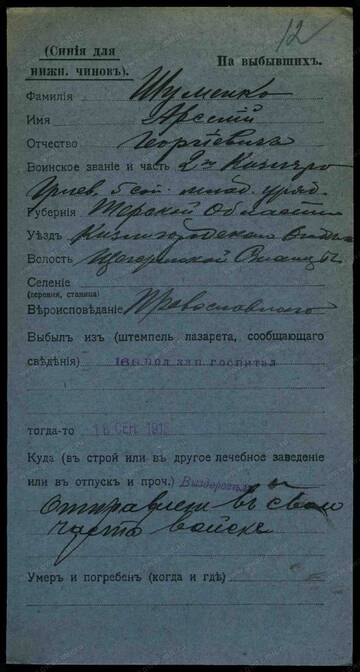 12
(Синія для
нижн. чиновъ).
На выбывшихъ.
Фамилія Шуменко
Имя Арсеній
Отчество Георгіевичъ
Воинское званіе и часть 2й Кизляро
Гребен. 5 сот. млад. уряд.
Губернія Терской Области
Уѣздъ Кизлярскаго Отдѣла
Волость Станицы
Селеніе
(деревня, станица)
Вѣроисповѣданіе Православнаго
Выбылъ изъ (штемпель лазарета, сообщающаго
свѣдѣнія) пол зап госпитал
тогда-то 16 СЕН 191
Куда (въ строй или въ другое лечебное заведеніе
или въ отпускъ и проч.) Выздоровѣл
отправлен въ свою
часть войскъ
Умеръ и погребенъ (когда и гдѣ)